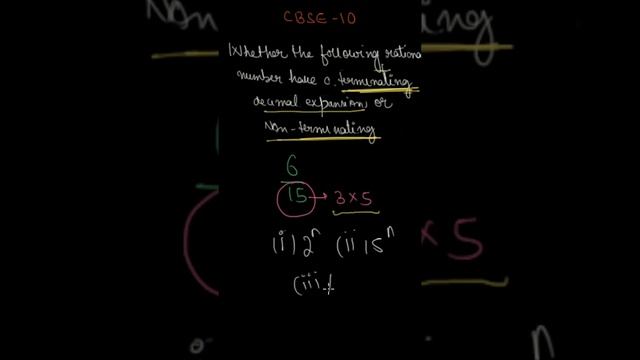 CBSE-10
Whether the following rationa
number have a terminating
decimal expansion, or
Non-terminating
6
15 → 3×5
(i) 2ⁿ (ii) 5ⁿ
(iii)
×5
n